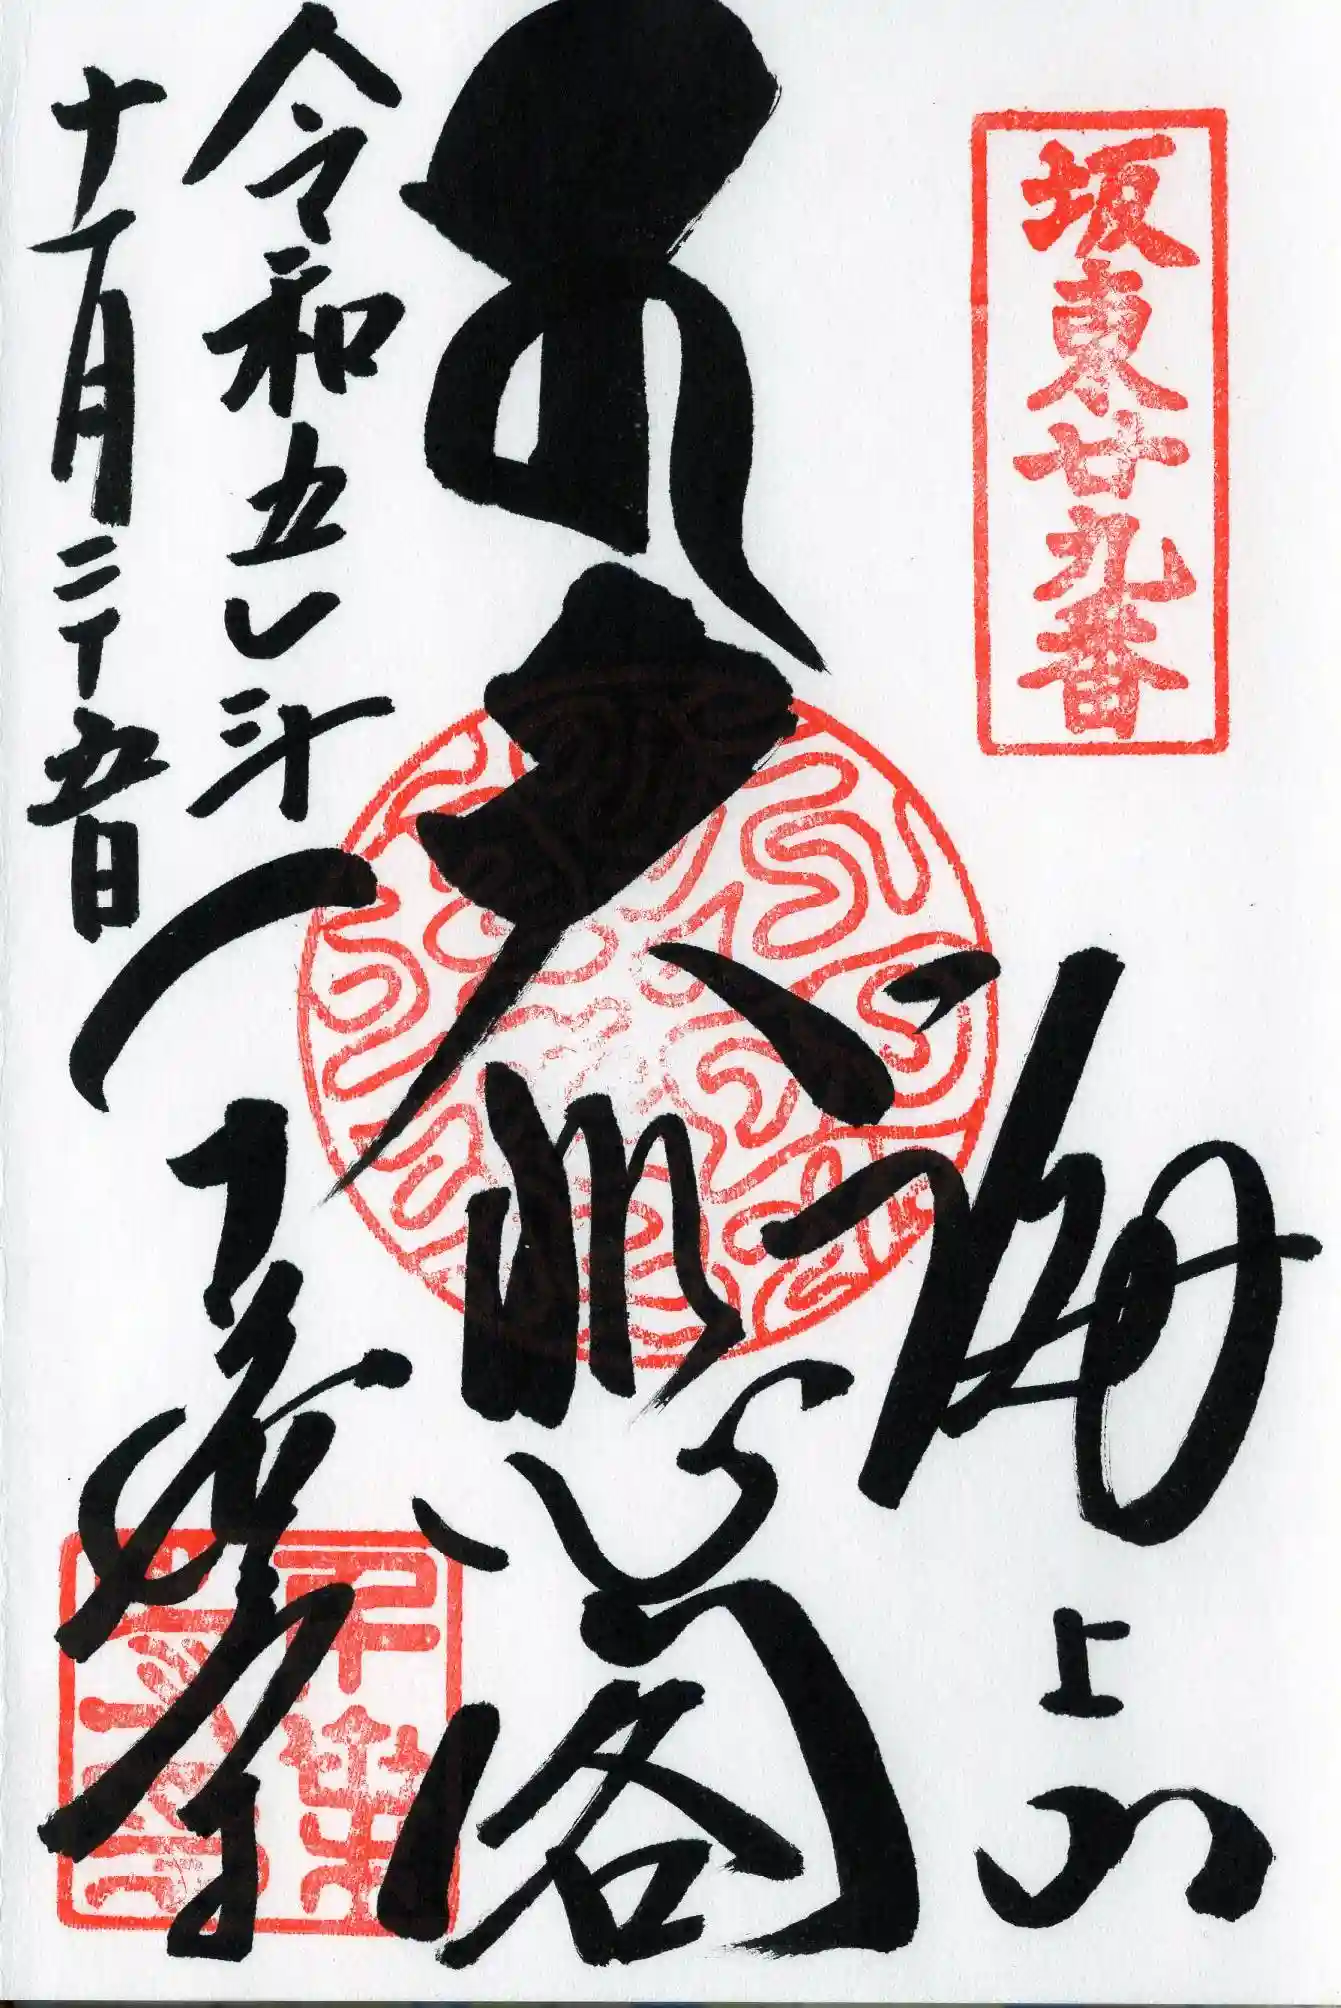 坂東廿九番
海上山
大悲閣
千葉寺
令和五年
十一月二十五日